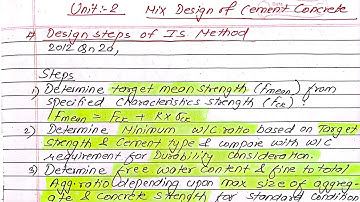 Unit:-2 Mix Design of Cement Concrete
# Design steps of IS Method
2012 Qn 2a,
Steps
1) Determine target mean strength (fmean) from
specified characteristics strength (fck)
fmean = fck + K x σck
2) Determine Minimum w/c ratio based on Target
Strength & Cement type & compare with w/c
requirement for Durability consideration.
3) Determine free water content & fine to total
Agg. ratio depending upon max size of aggreg-
ate & Concrete strength for standard condition